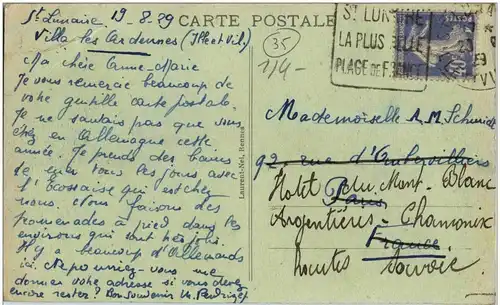 St Lunaire, 19-8.29
CARTE POSTALE
Villa les Ardennes (Ille et Vil.)
35
1/4-
ST LUNAIRE
LA PLUS BELLE
PLAGE DE FRANCE
Ma chère Anne-Marie
Je vous remercie beaucoup de
votre gentille carte postale.
Je ne savais pas que vous
étiez en Allemagne cette
année. Je prends des bains
de mer tous les jours avec
l'Ecossaise qui est chez
nous. Nous faisons des
promenades à pied dans les
environs qui sont très jolis.
Il y a beaucoup d'Allemands
ici. Ne pourriez-vous me
donner votre adresse si vous devez
encore rester? Bon souvenir M.
Laurent-Nel, Rennes
Mademoiselle A. M. Schmidt
92, rue d'
Hotel du Mont-Blanc
Paris
Argentières-Chamonix
France
Hautes Savoie.